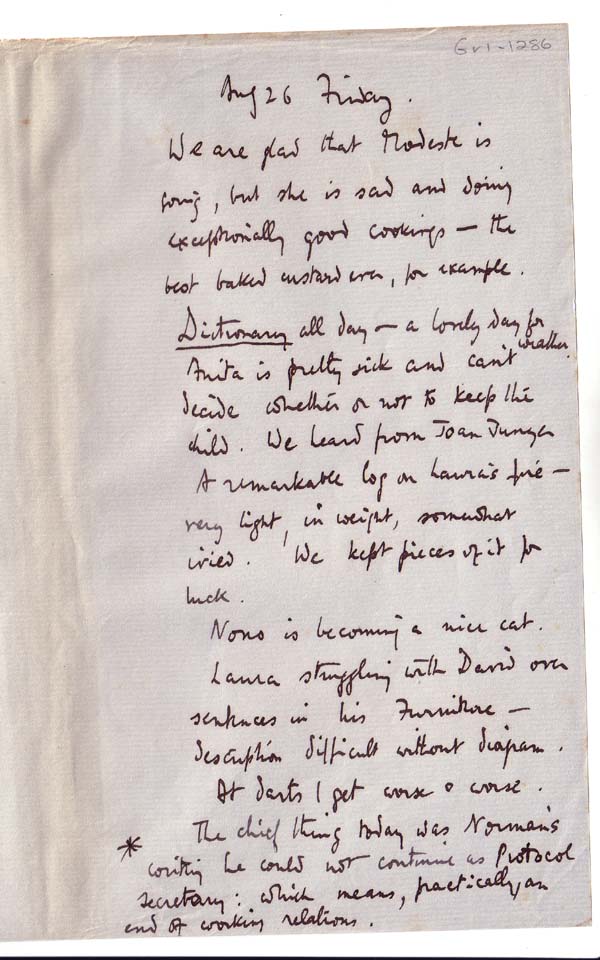 Gv1-1286
Aug 26 Friday.
We are glad that Modeste is
going, but she is sad and doing
exceptionally good cookings – the
best baked custard ever, for example.
Dictionary all day – a lovely day for
weather.
Anita is pretty sick and can't
decide whether or not to keep the
child. We heard from Joan Junyer
A remarkable log on Laura's fire –
very light, in weight, somewhat
iried. We kept pieces of it for
luck.
Nono is becoming a nice cat.
Laura struggling with David over
sentences in his Furniture –
description difficult without diagram.
At darts I get worse & worse.
* The chief thing today was Norman's
writing he could not continue as Protocol
secretary: which means, practically, an
end of working relations.